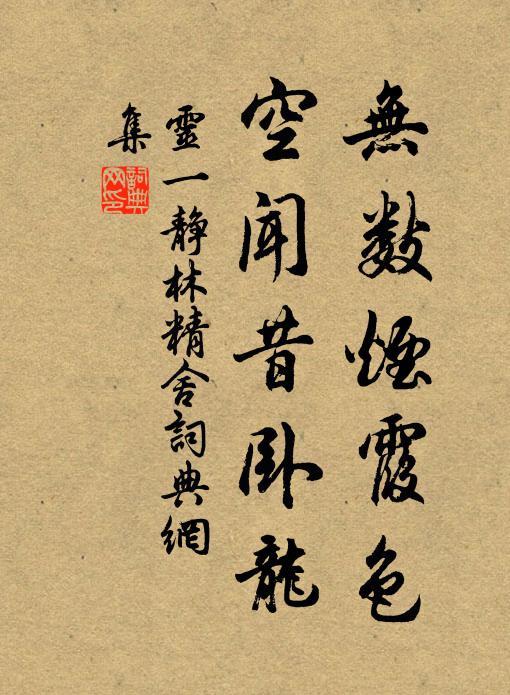 無數煙霞色
空聞昔臥龍
靈一静林精舍詞典網
集
詞典
网印